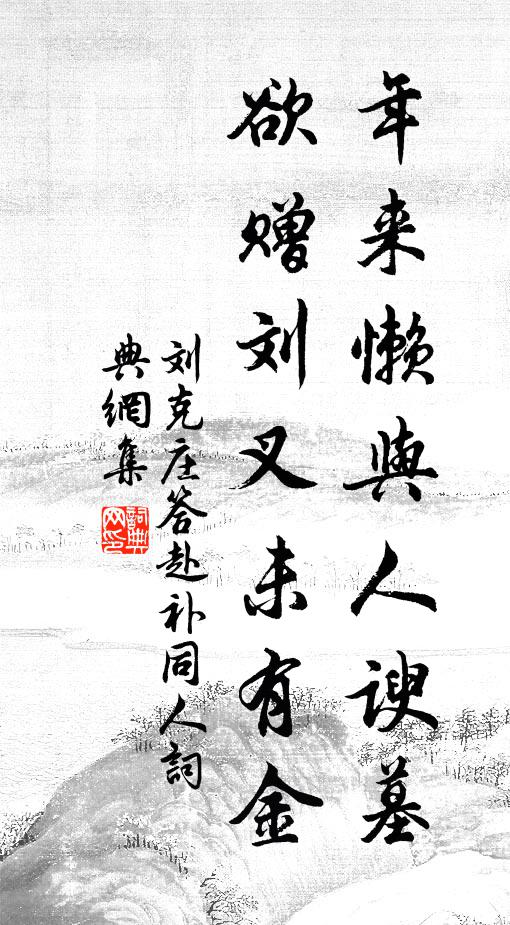 年来懒與人諛墓
欲赠刘叉未有金
刘克庄答赴补同人詞
典網集
詞典网印